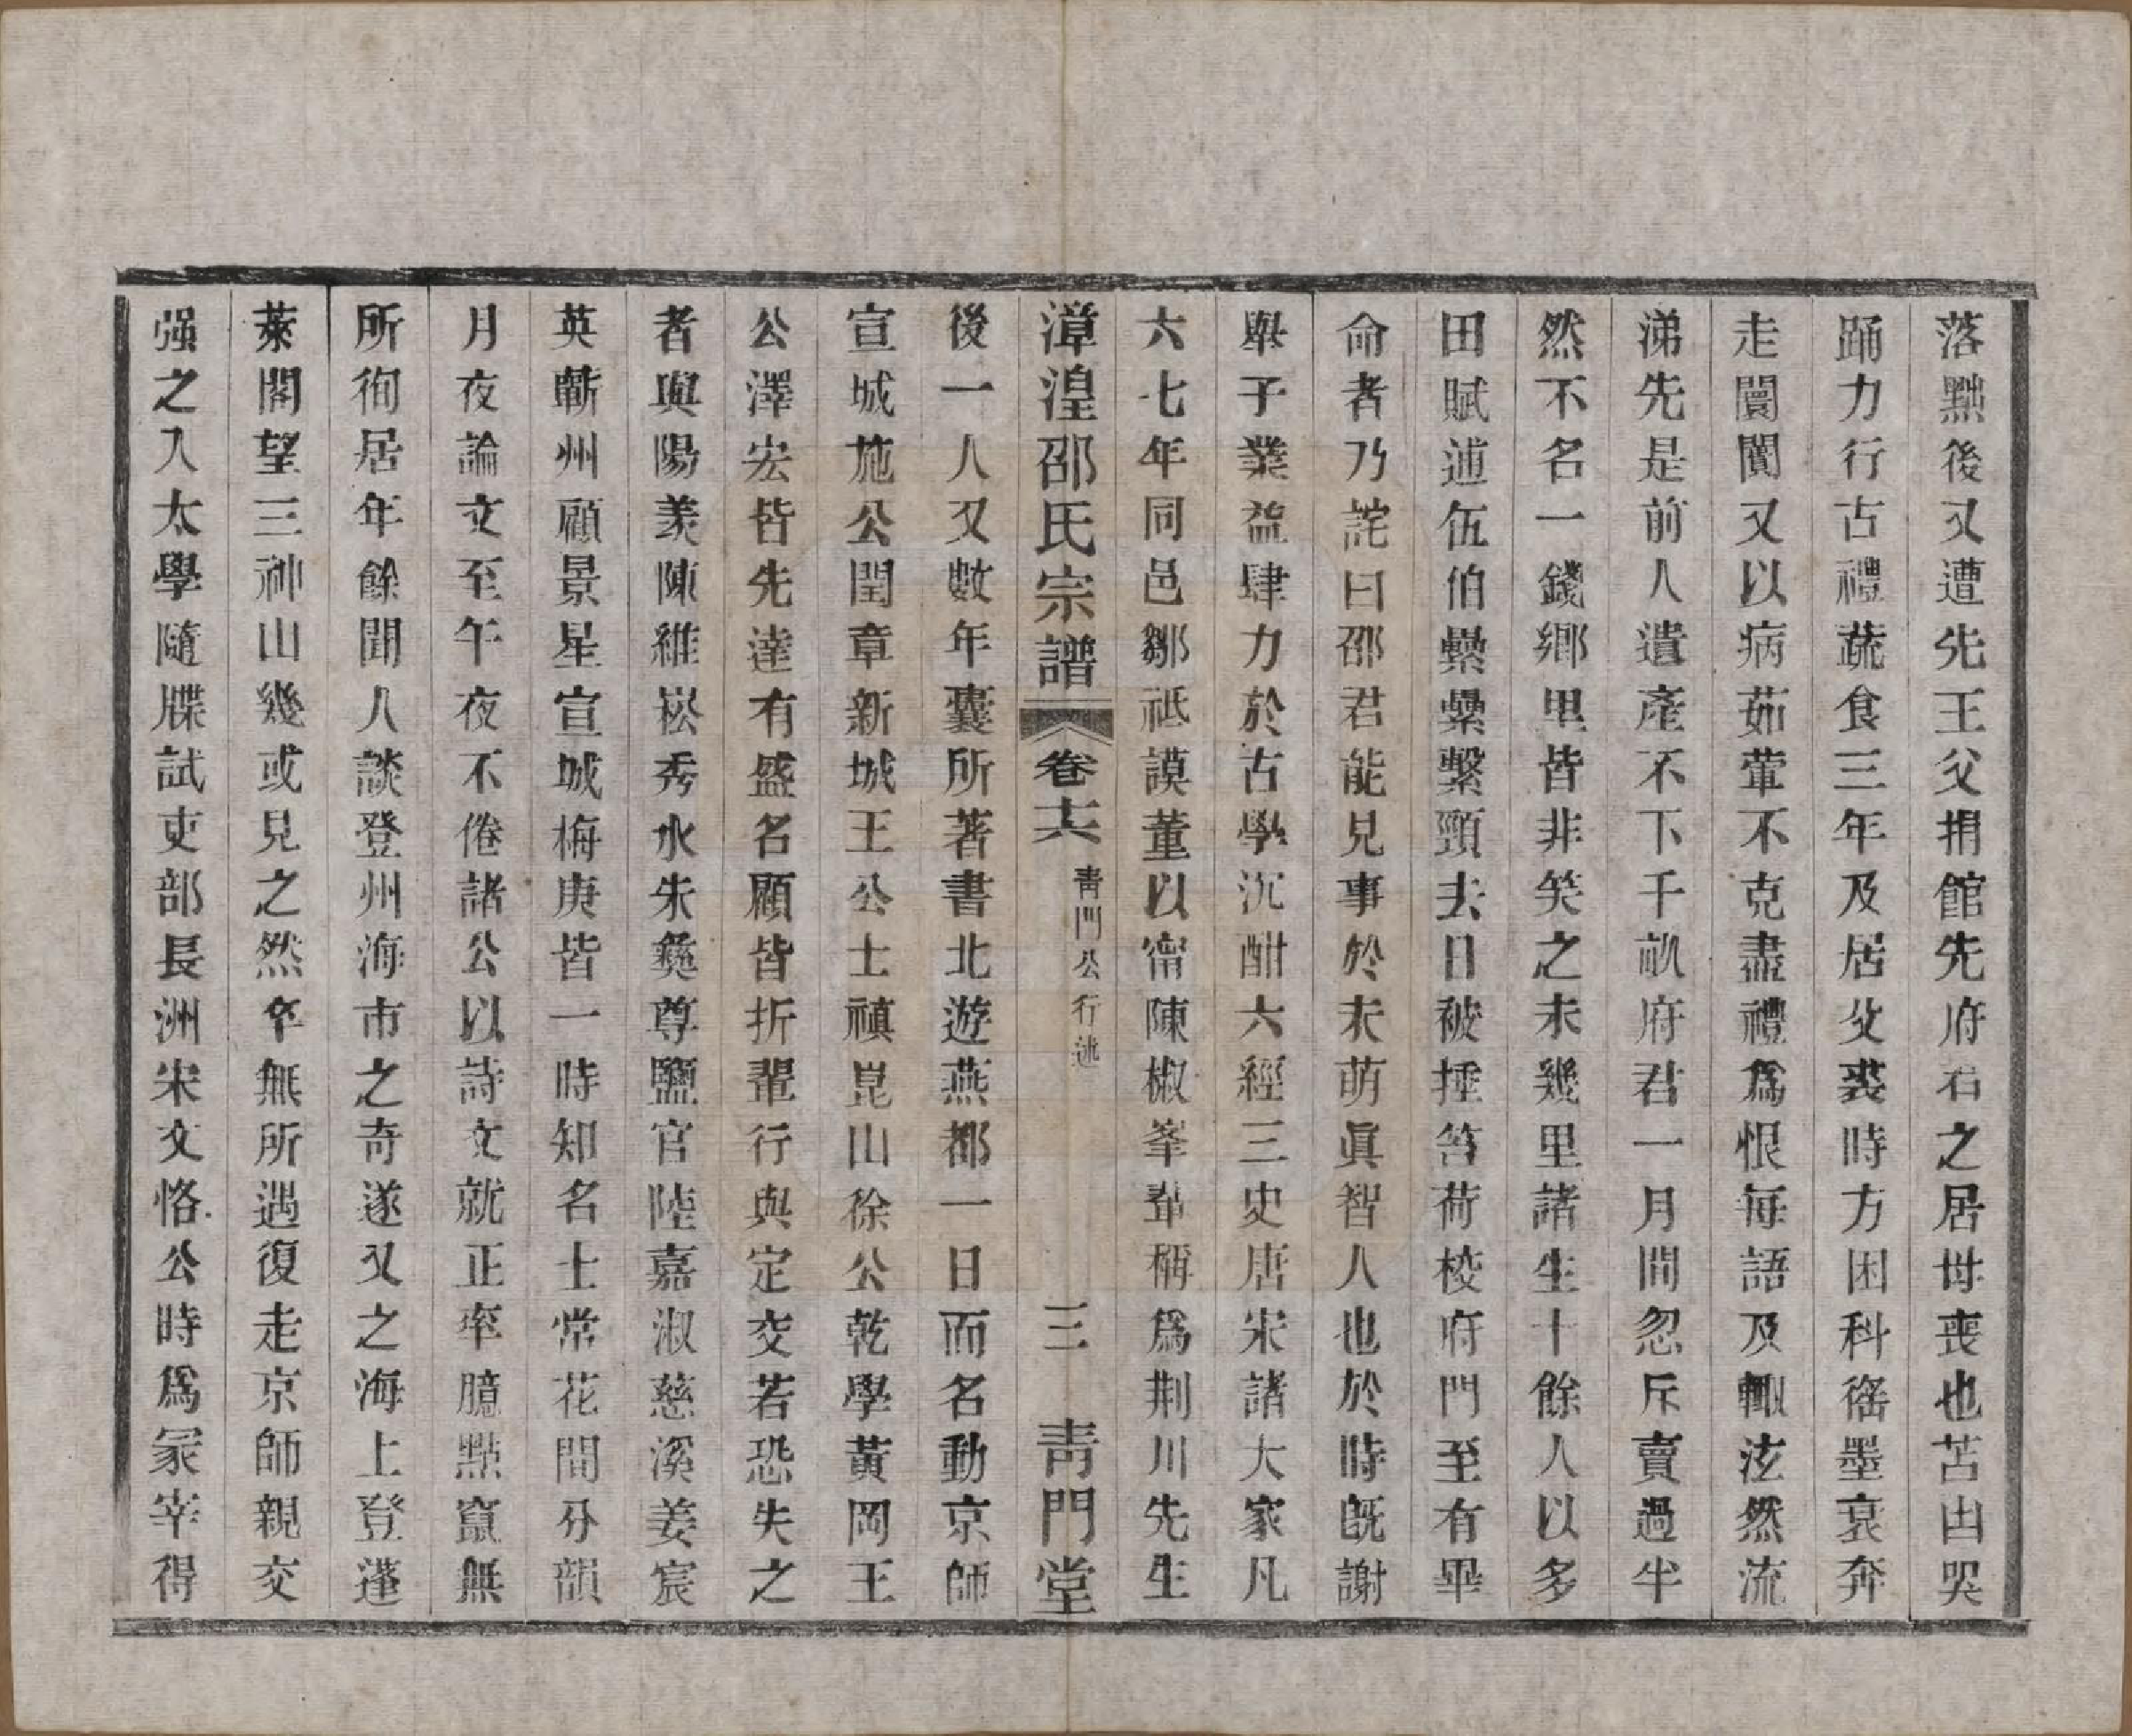 落㸃後又遭先王父捐館先府君之居母喪也苫凷哭
踊力行古禮蔬食三年及居父喪時方困科徭墨衰奔
走闤闠又以病茹葷不克盡禮爲恨每語及輒泫然流
涕先是前人遺產不下千畝府君一月間忽斥賣過半
然不名一錢鄉里皆非笑之未幾里諸生十餘人以多
田賦逋伍伯纍纍繫頸去日被捶笞荷校府門至有畢
命者乃詫曰邵君能見事於未萌眞智人也於時旣謝
舉子業益肆力於古學沉酣六經三史唐宋諸大家凡
六七年同邑鄒祗謨董以甯陳椒峯輩稱爲荆川先生
漳湟邵氏宗譜 卷十六 靑門公行述 三 靑門堂
後一人又數年囊所著書北遊燕都一日而名動京師
宣城施公閏章新城王公士禛崑山徐公乾學黃岡王
公澤宏皆先達有盛名顧皆折輩行與定交若恐失之
者與陽羨陳維崧秀水朱彝尊鹽官陸嘉淑慈溪姜宸
英蘄州顧景星宣城梅庚皆一時知名士常花間分韻
月夜論文至午夜不倦諸公以詩文就正率臆㸃竄無
所徇居年餘聞人談登州海市之奇遂又之海上登蓬
萊閣望三神山幾或見之然卒無所遇復走京師親交
强之入太學隨牒試吏部長洲宋文恪公時爲冡宰得